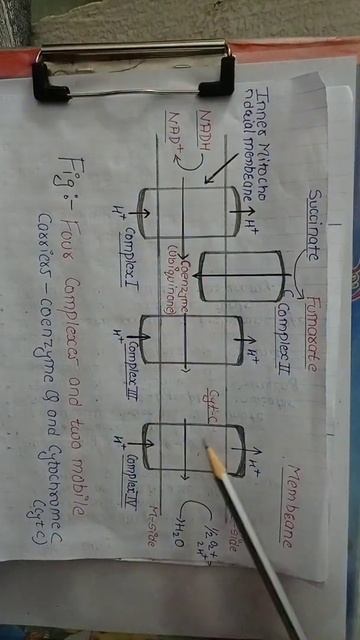 Succinate Fumarate
Membrane
Inner Mitocho
ndrial membrane
Complex II
NADH
NAD⁺
H⁺
H⁺
H⁺
Cyt-C
-side
1/2 O₂ +
2H⁺
H₂O
Coenzyme
(Ubiquinone)
M-side
H⁺
Complex I
H⁺
Complex III
H⁺
Complex IV
Fig:- Four Complexes and two mobile
Carries - coenzyme Q and Cytochrome C
(Cyt C)